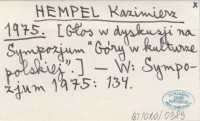 HEMPEL Kazimierz
x
1975. [Głos w dyskusji na
Sympozjum "Góry w kulturze
polskiej".] — W: Sympo-
zjum 1975: 134.